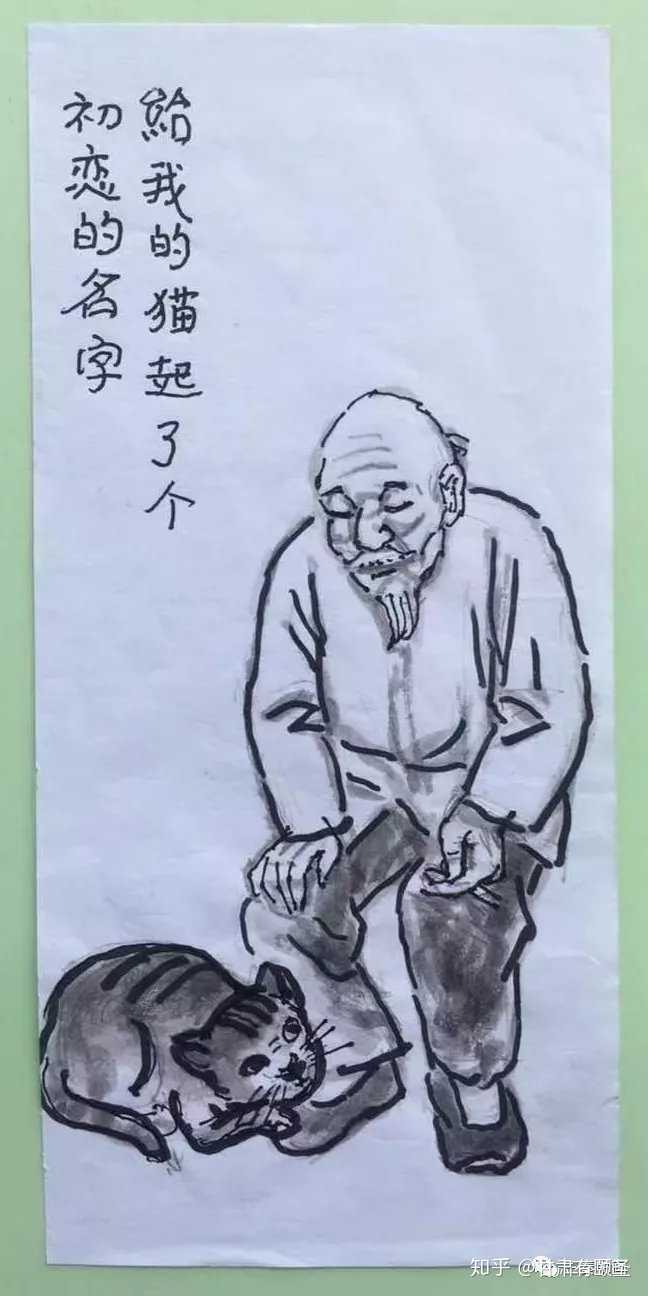 給我的猫起了个
初恋的名字
知乎